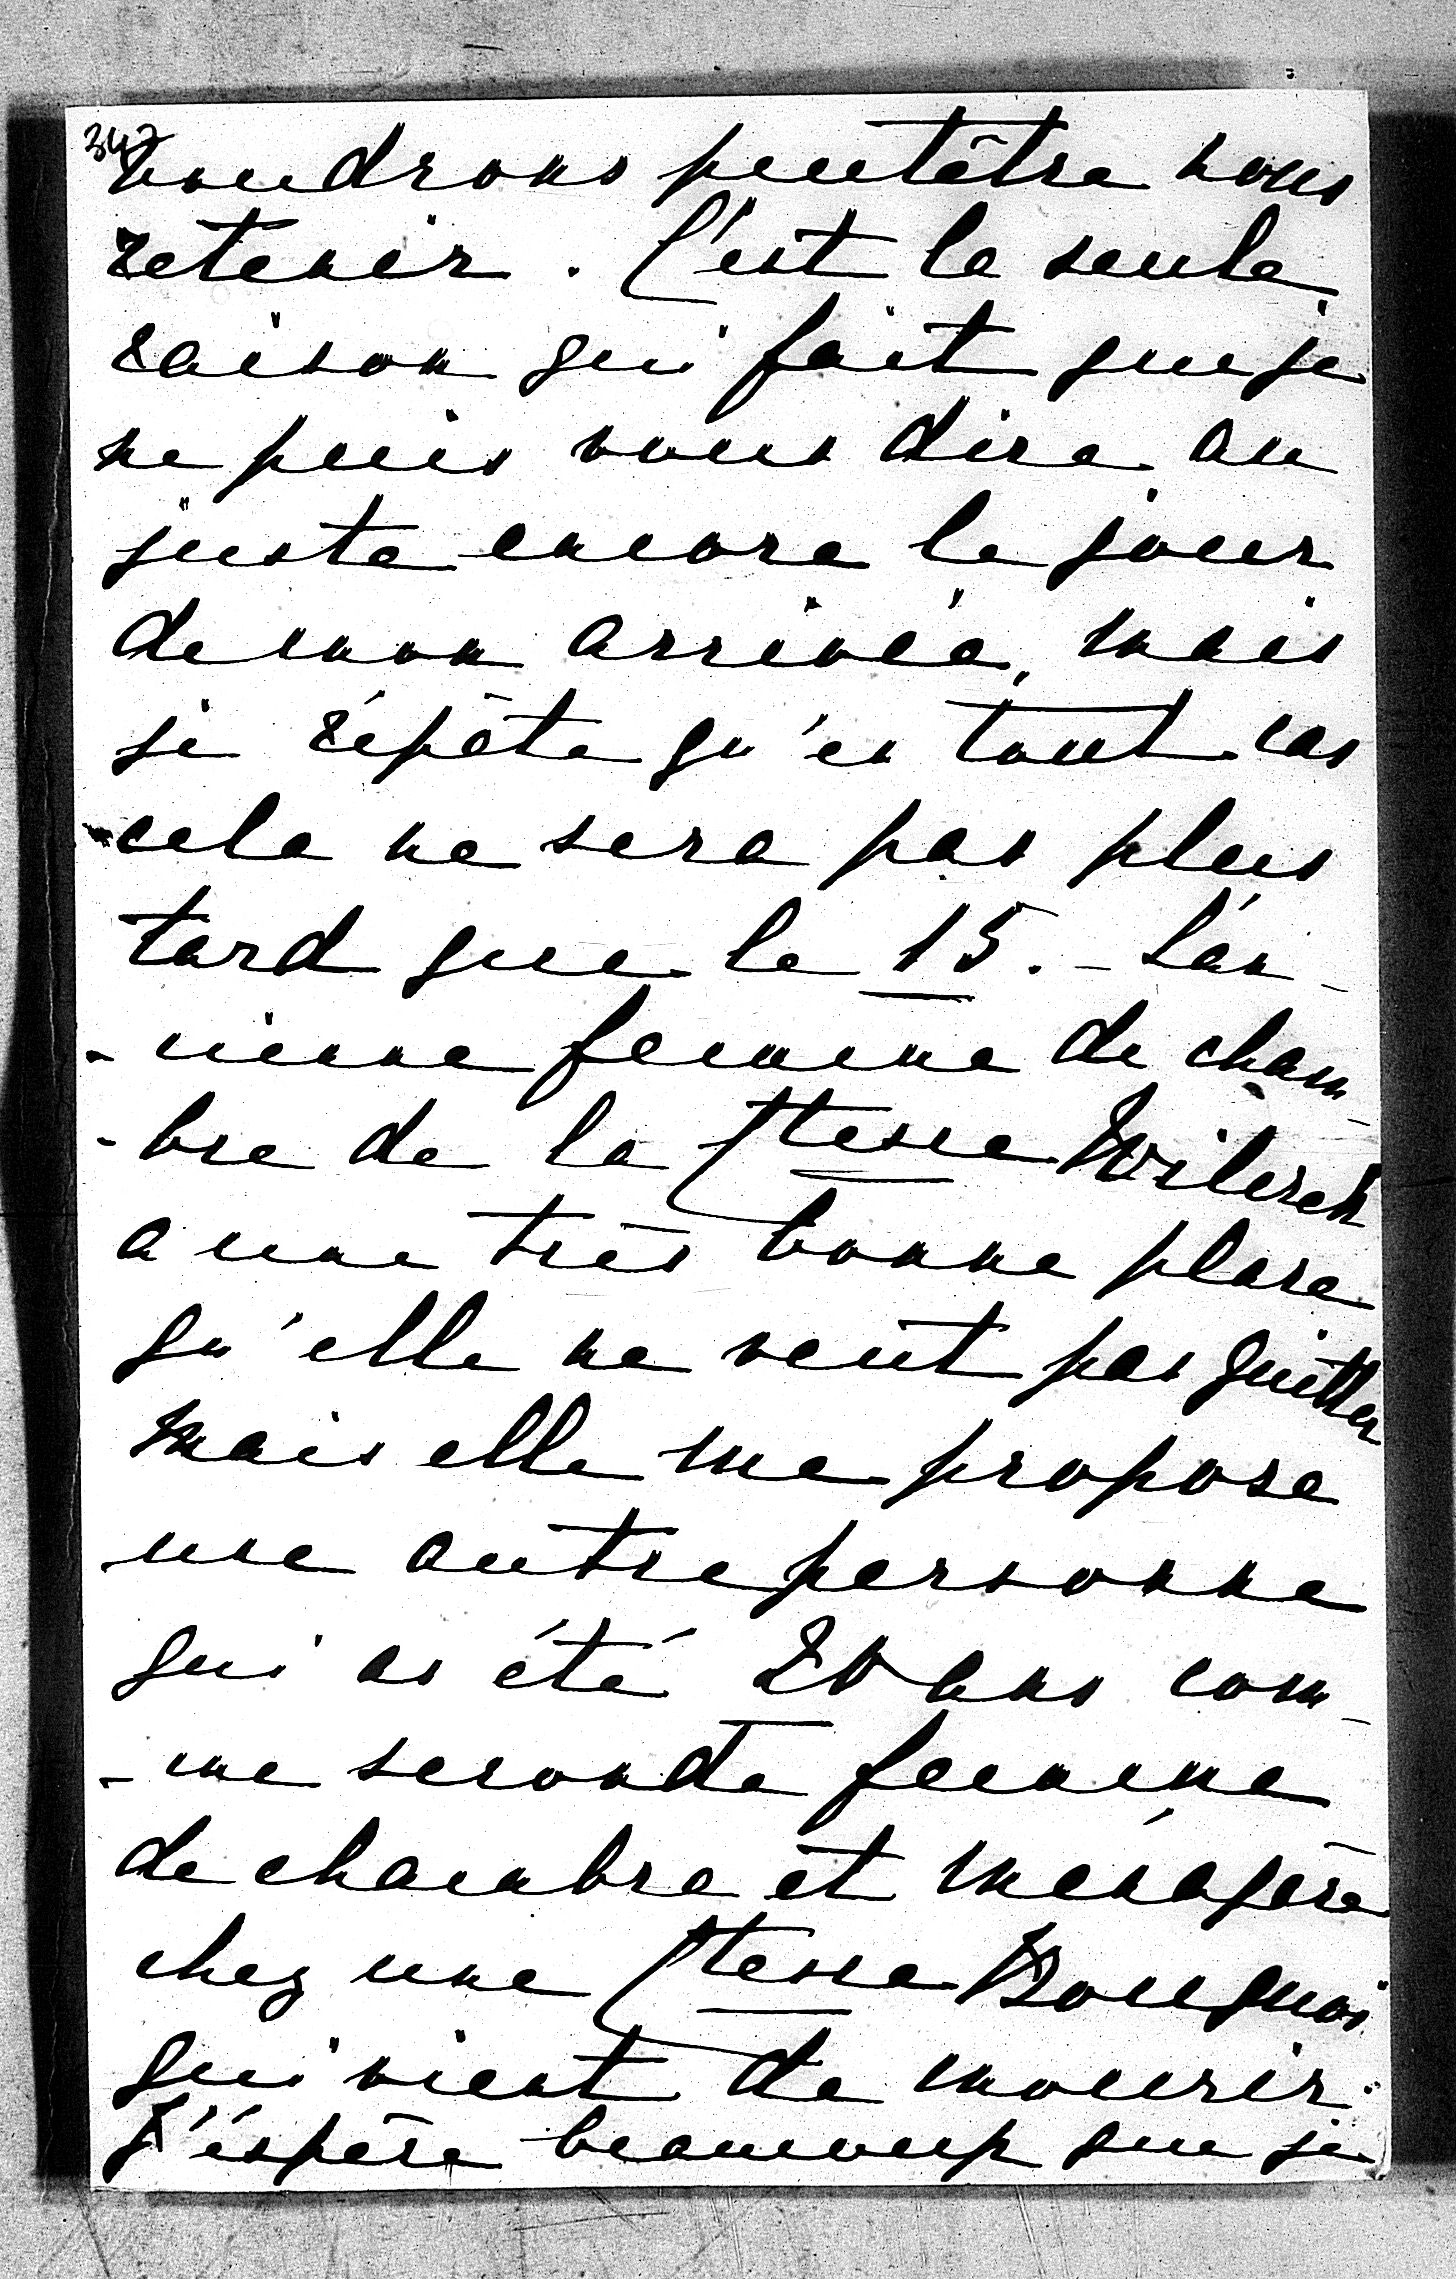 347
voudrons peutêtre nous
retenir. C'est la seule
raison qui fait que je
ne puis vous dire au
juste encore le jour
de mon arrivée, mais
je répète qu'en tout cas
cela ne sera pas plus
tard que le 15. – L'an-
-cienne femme de cham-
-bre de la Ctesse Wilczek
a une très bonne place
qu'elle ne veut pas quitter
mais elle me propose
une autre personne
qui as été 20 ans com-
-me seconde femme
de chambre et ménagère
chez une Ctesse Bouquoi
qui vient de mourir.
J'éspère beaucoup que je